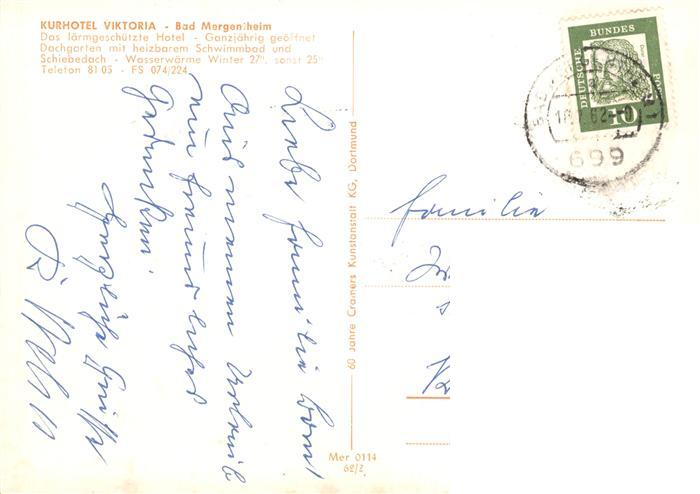 KURHOTEL VIKTORIA - Bad Mergentheim
Das lärmgeschützte Hotel - Ganzjährig geöffnet
Dachgarten mit heizbarem Schwimmbad und
Schiebedach - Wasserwärme Winter 27°, sonst 25°
Telefon 81 05 - FS 074/224
Liebe Familie
Aus meinem Urlaub
ein freundliches
Gedenken.
Herzliche Grüße
60 Jahre Cramers Kunstanstalt KG, Dortmund
Mer 0114
62/2
DEUTSCHE
BUNDES
POST
10
62
699
Familie